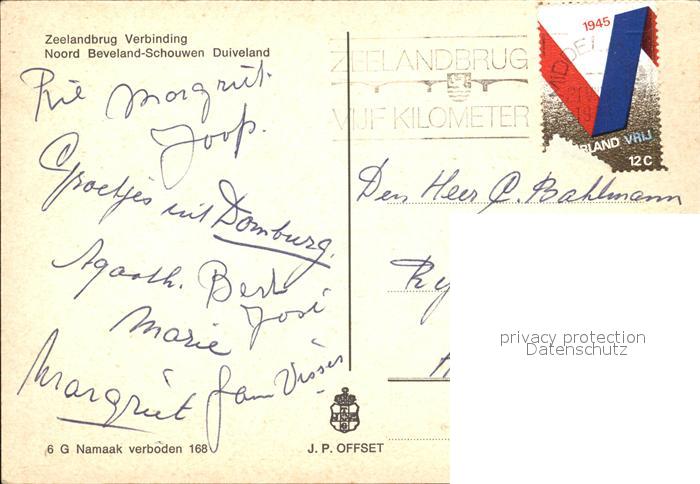 Zeelandbrug Verbinding
Noord Beveland-Schouwen Duiveland
Rie Margriet.
Joop.
Groetjes uit Domburg.
Agaath. Bert
José
Marie
Margriet Jan Visser
6 G Namaak verboden 168
J. P. OFFSET
ZEELANDBRUG
VIJF KILOMETER
1945
ERLAND VRIJ
12 C
Den Heer C. Bahlmann
privacy protection
Datenschutz